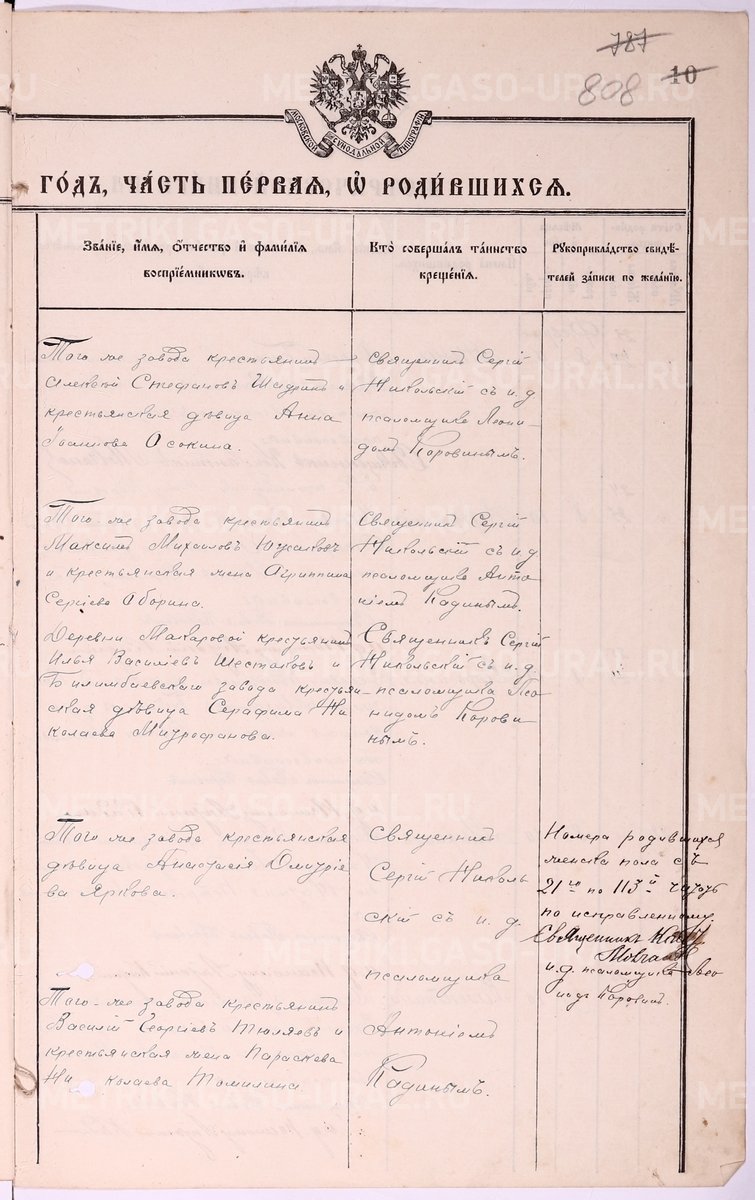 787
808
10
МОСКОВСКОЙ СѴНОДАЛЬНОЙ ТИПОГРАФІИ
ГО́ДЪ, ЧА́СТЬ ПЕ́РВАЯ, Ѽ РОДИ́ВШИХСЯ.
Зва́нїе, и́мя, ѻ́тчество и҆ фами́лїя
воспрїе́мниковъ.
Кто̀ соверша́лъ та́инство
креще́нїя.
Рꙋкоприкла́дство свидѣ́-
телей за́писи по жела́нїю.
Того же завода крестьянинъ
Алексѣй Стефановъ Шадринъ и
крестьянская дѣвица Анна
Іванова Осокина.
Священникъ Сергій
Никольскій съ и. д.
псаломщика Леони-
домъ Коровинымъ.
Того-же завода крестьянинъ
Максимъ Михаиловъ Южаковъ
и крестьянская жена Агриппина
Сергіева Оборина.
Священникъ Сергій
Никольскій съ и. д.
псаломщика Анто-
ніемъ Кадинымъ.
Деревни Макаровой крестьянинъ
Илья Василіевъ Шестаковъ и
Билимбаевскаго завода крестьян-
ская дѣвица Серафима Ни-
колаева Митрофанова.
Священникъ Сергій
Никольскій съ и. д.
псаломщика Лео-
нидомъ Корови-
нымъ.
Того-же завода крестьянская
дѣвица Анастасія Димитріе-
ва Яркова.
Священникъ
Сергій Николь-
скій съ и. д.
псаломщика
Антоніемъ
Кадинымъ.
Номера родившихся
женска пола съ
21го по 113й читать
по исправленному.
Священникъ
и. д. псаломщика Лео-
нидъ Коровинъ.
Того-же завода крестьянинъ
Василій Георгіевъ Тюляевъ и
крестьянская жена Параскева
Николаева Томилина
METRIKI.GASO-URAL.RU